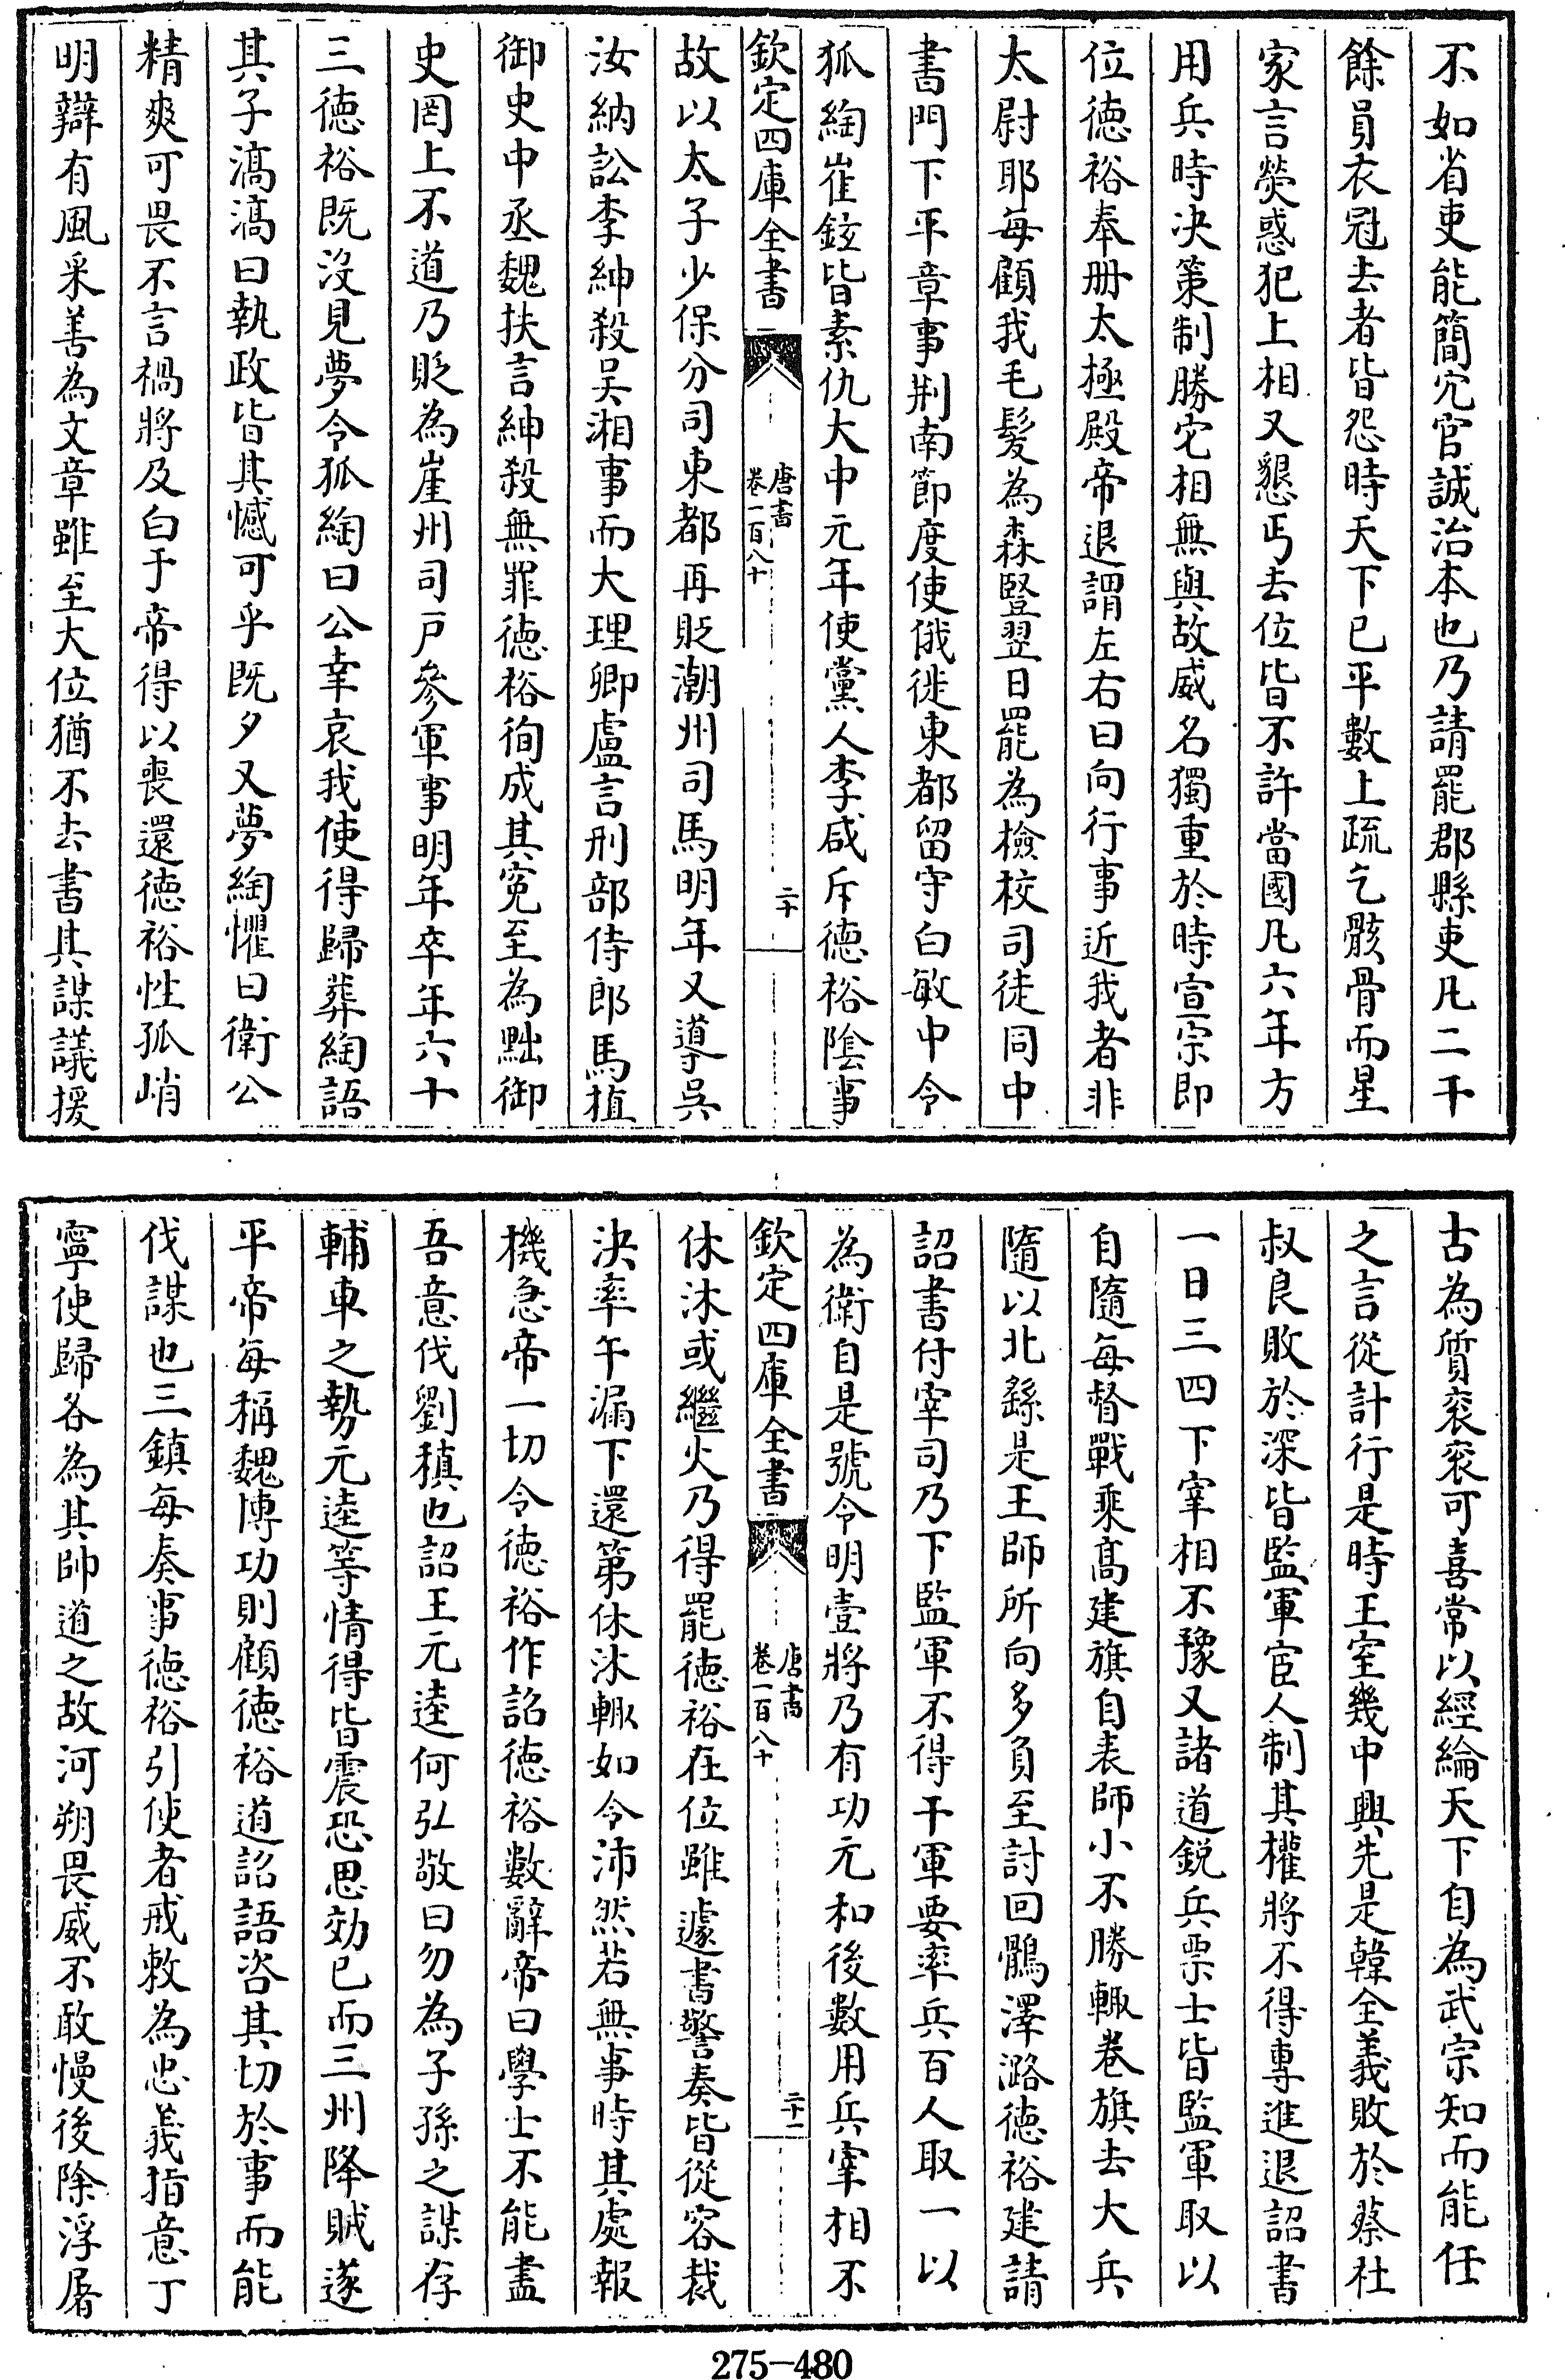 不如省吏能簡冗官誠治本也乃請罷郡縣吏凡二千
餘員衣冠去者皆怨時天下已平數上疏乞骸骨而星
家言熒惑犯上相又懇丐去位皆不許當國凡六年方
用兵時决策制勝它相無與故威名獨重於時宣宗即
位徳裕奉冊太極殿帝退謂左右曰向行事近我者非
太尉耶每顧我毛髮為森豎翌日罷為檢校司徒同中
書門下平章事荆南節度使俄徙東都留守白敏中令
狐綯崔鉉皆素仇大中元年使黨人李咸斥徳裕陰事
欽定四庫全書
唐書
卷一百八十
二十
故以太子少保分司東都再貶潮州司馬明年又導吳
汝納訟李紳殺吳湘事而大理卿盧言刑部侍郎馬植
御史中丞魏扶言紳殺無罪徳裕徇成其寃至為黜御
史罔上不道乃貶為崖州司戸參軍事明年卒年六十
三徳裕既沒見夢令狐綯曰公幸哀我使得歸葬綯語
其子滈滈曰執政皆其憾可乎既夕又夢綯懼曰衛公
精爽可畏不言禍將及白于帝得以喪還徳裕性孤峭
明辯有風采善為文章雖至大位猶不去書其謀議援
古為質衮衮可喜常以經綸天下自為武宗知而能任
之言從計行是時王室幾中興先是韓全義敗於蔡杜
叔良敗於深皆監軍宦人制其權將不得專進退詔書
一日三四下宰相不豫又諸道鋭兵票士皆監軍取以
自隨每督戰乘髙建旗自表師小不勝輒卷旗去大兵
隨以北繇是王師所向多負至討回鶻澤潞徳裕建請
詔書付宰司乃下監軍不得干軍要率兵百人取一以
為衛自是號令明壹將乃有功元和後數用兵宰相不
欽定四庫全書
唐書
卷一百八十
二十一
休沐或繼火乃得罷徳裕在位雖遽書警奏皆從容裁
決率午漏下還第休沐輒如令沛然若無事時其處報
機急帝一切令徳裕作詔徳裕數辭帝曰學士不能盡
吾意伐劉稹也詔王元逵何弘敬曰勿為子孫之謀存
輔車之勢元逵等情得皆震恐思効已而三州降賊遂
平帝每稱魏博功則顧徳裕道詔語咨其切於事而能
伐謀也三鎮每奏事徳裕引使者戒敕為忠義指意丁
寧使歸各為其帥道之故河朔畏威不敢慢後除浮屠
275-480